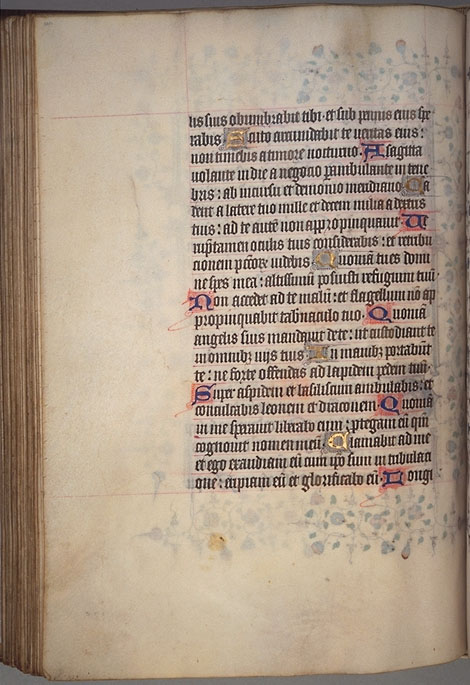 lis suis obumbrabit tibi · et sub pennis eius spe
rabis Scuto circundabit te veritas eius :
non timebis a timore nocturno · A sagitta
volante in die a negocio perambulante in tene
bris : ab incursu et demonio meridiano Ca
dent a latere tuo mille et decem milia a dextris
tuis : ad te autē non appropinquavit Ve
rūptamen oculis tuis considerabis : et retribu
cionem pctor̄ videbis Quoniā tu es domi
ne spes mea : altissimū posuisti refugium tuū ·
Non accedet ad te malū : et flagellum nō ap
propinquabit tabnaculo tuo · Quoniā
angelis suis mandavit de te : ut custodiant te
in omnibz viis tuis In manibz portabūt
te : ne forte offendas ad lapidem pedem tuū ·
Super aspidem et basiliscum ambulabis : et
conculcabis leonem et draconem Quoniā
in me speravit liberabo eum : ptegam eū qm̄
cognovit nomen meū · Clamabit ad me
et ego exaudiam eū cum ipo sum in tribulaci
one : eripiam eū et glorificabo eū · Longi